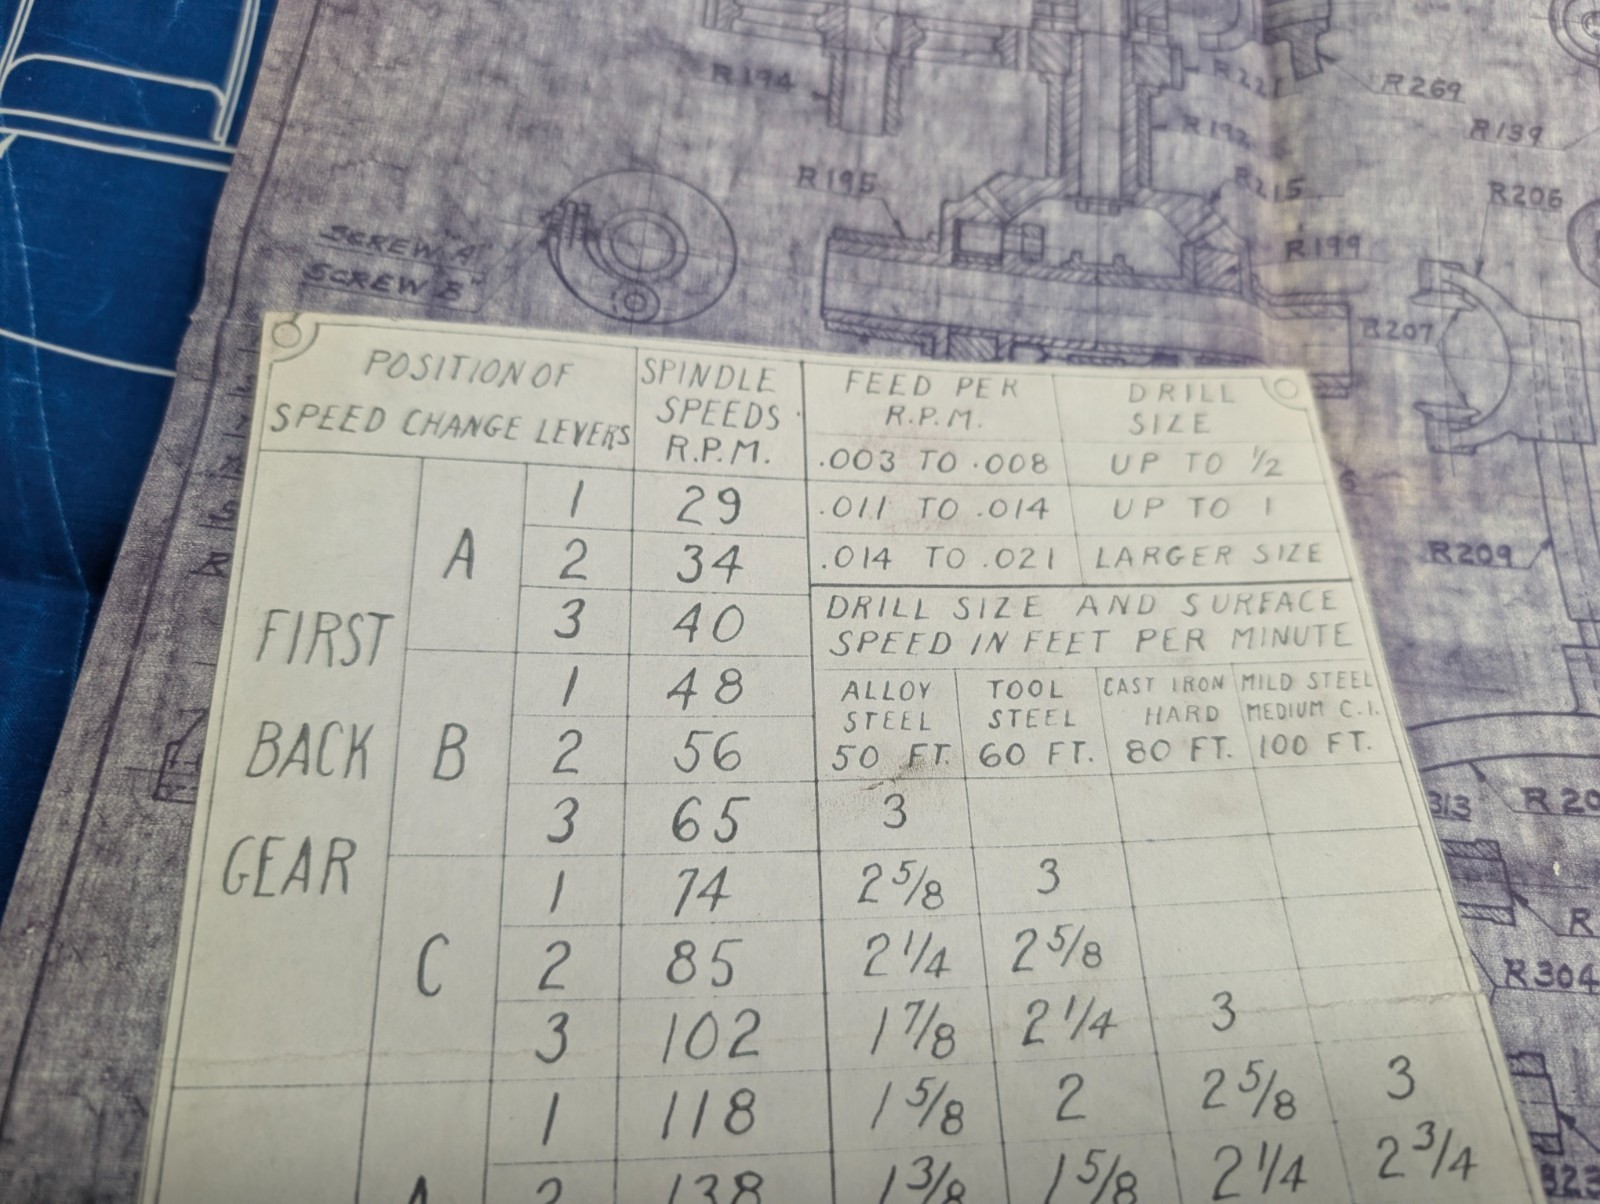 R194
R269
R139
R195
R215
R206
SCREW "A"
SCREW "B"
R199
R207
R209
313
R 20
R
R304
323
POSITION OF
SPEED CHANGE LEVERS
SPINDLE
SPEEDS
R.P.M.
FEED PER
R.P.M.
DRILL
SIZE
.003 TO .008 UP TO 1/2
.011 TO .014 UP TO 1
.014 TO .021 LARGER SIZE
DRILL SIZE AND SURFACE
SPEED IN FEET PER MINUTE
ALLOY
STEEL
50 FT.
TOOL
STEEL
60 FT.
CAST IRON
HARD
80 FT.
MILD STEEL
MEDIUM C.I.
100 FT.
FIRST
BACK
GEAR
A
1 29
2 34
3 40
B
1 48
2 56
3 65 3
C
1 74 2 5/8 3
2 85 2 1/4 2 5/8
3 102 1 7/8 2 1/4 3
1 118 1 5/8 2 2 5/8 3
A
2 138 1 3/8 1 5/8 2 1/4 2 3/4